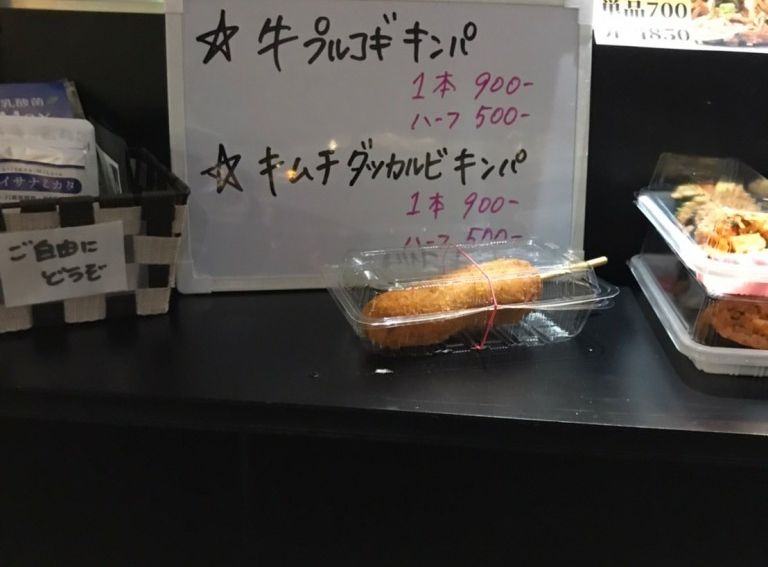 ☆ 牛プルコギキンパ
1本 900-
ハーフ 500-
☆ キムチダッカルビキンパ
1本 900-
ハーフ 500-
単品700
1850
乳酸菌
イサナミカタ
ご自由に
どうぞ